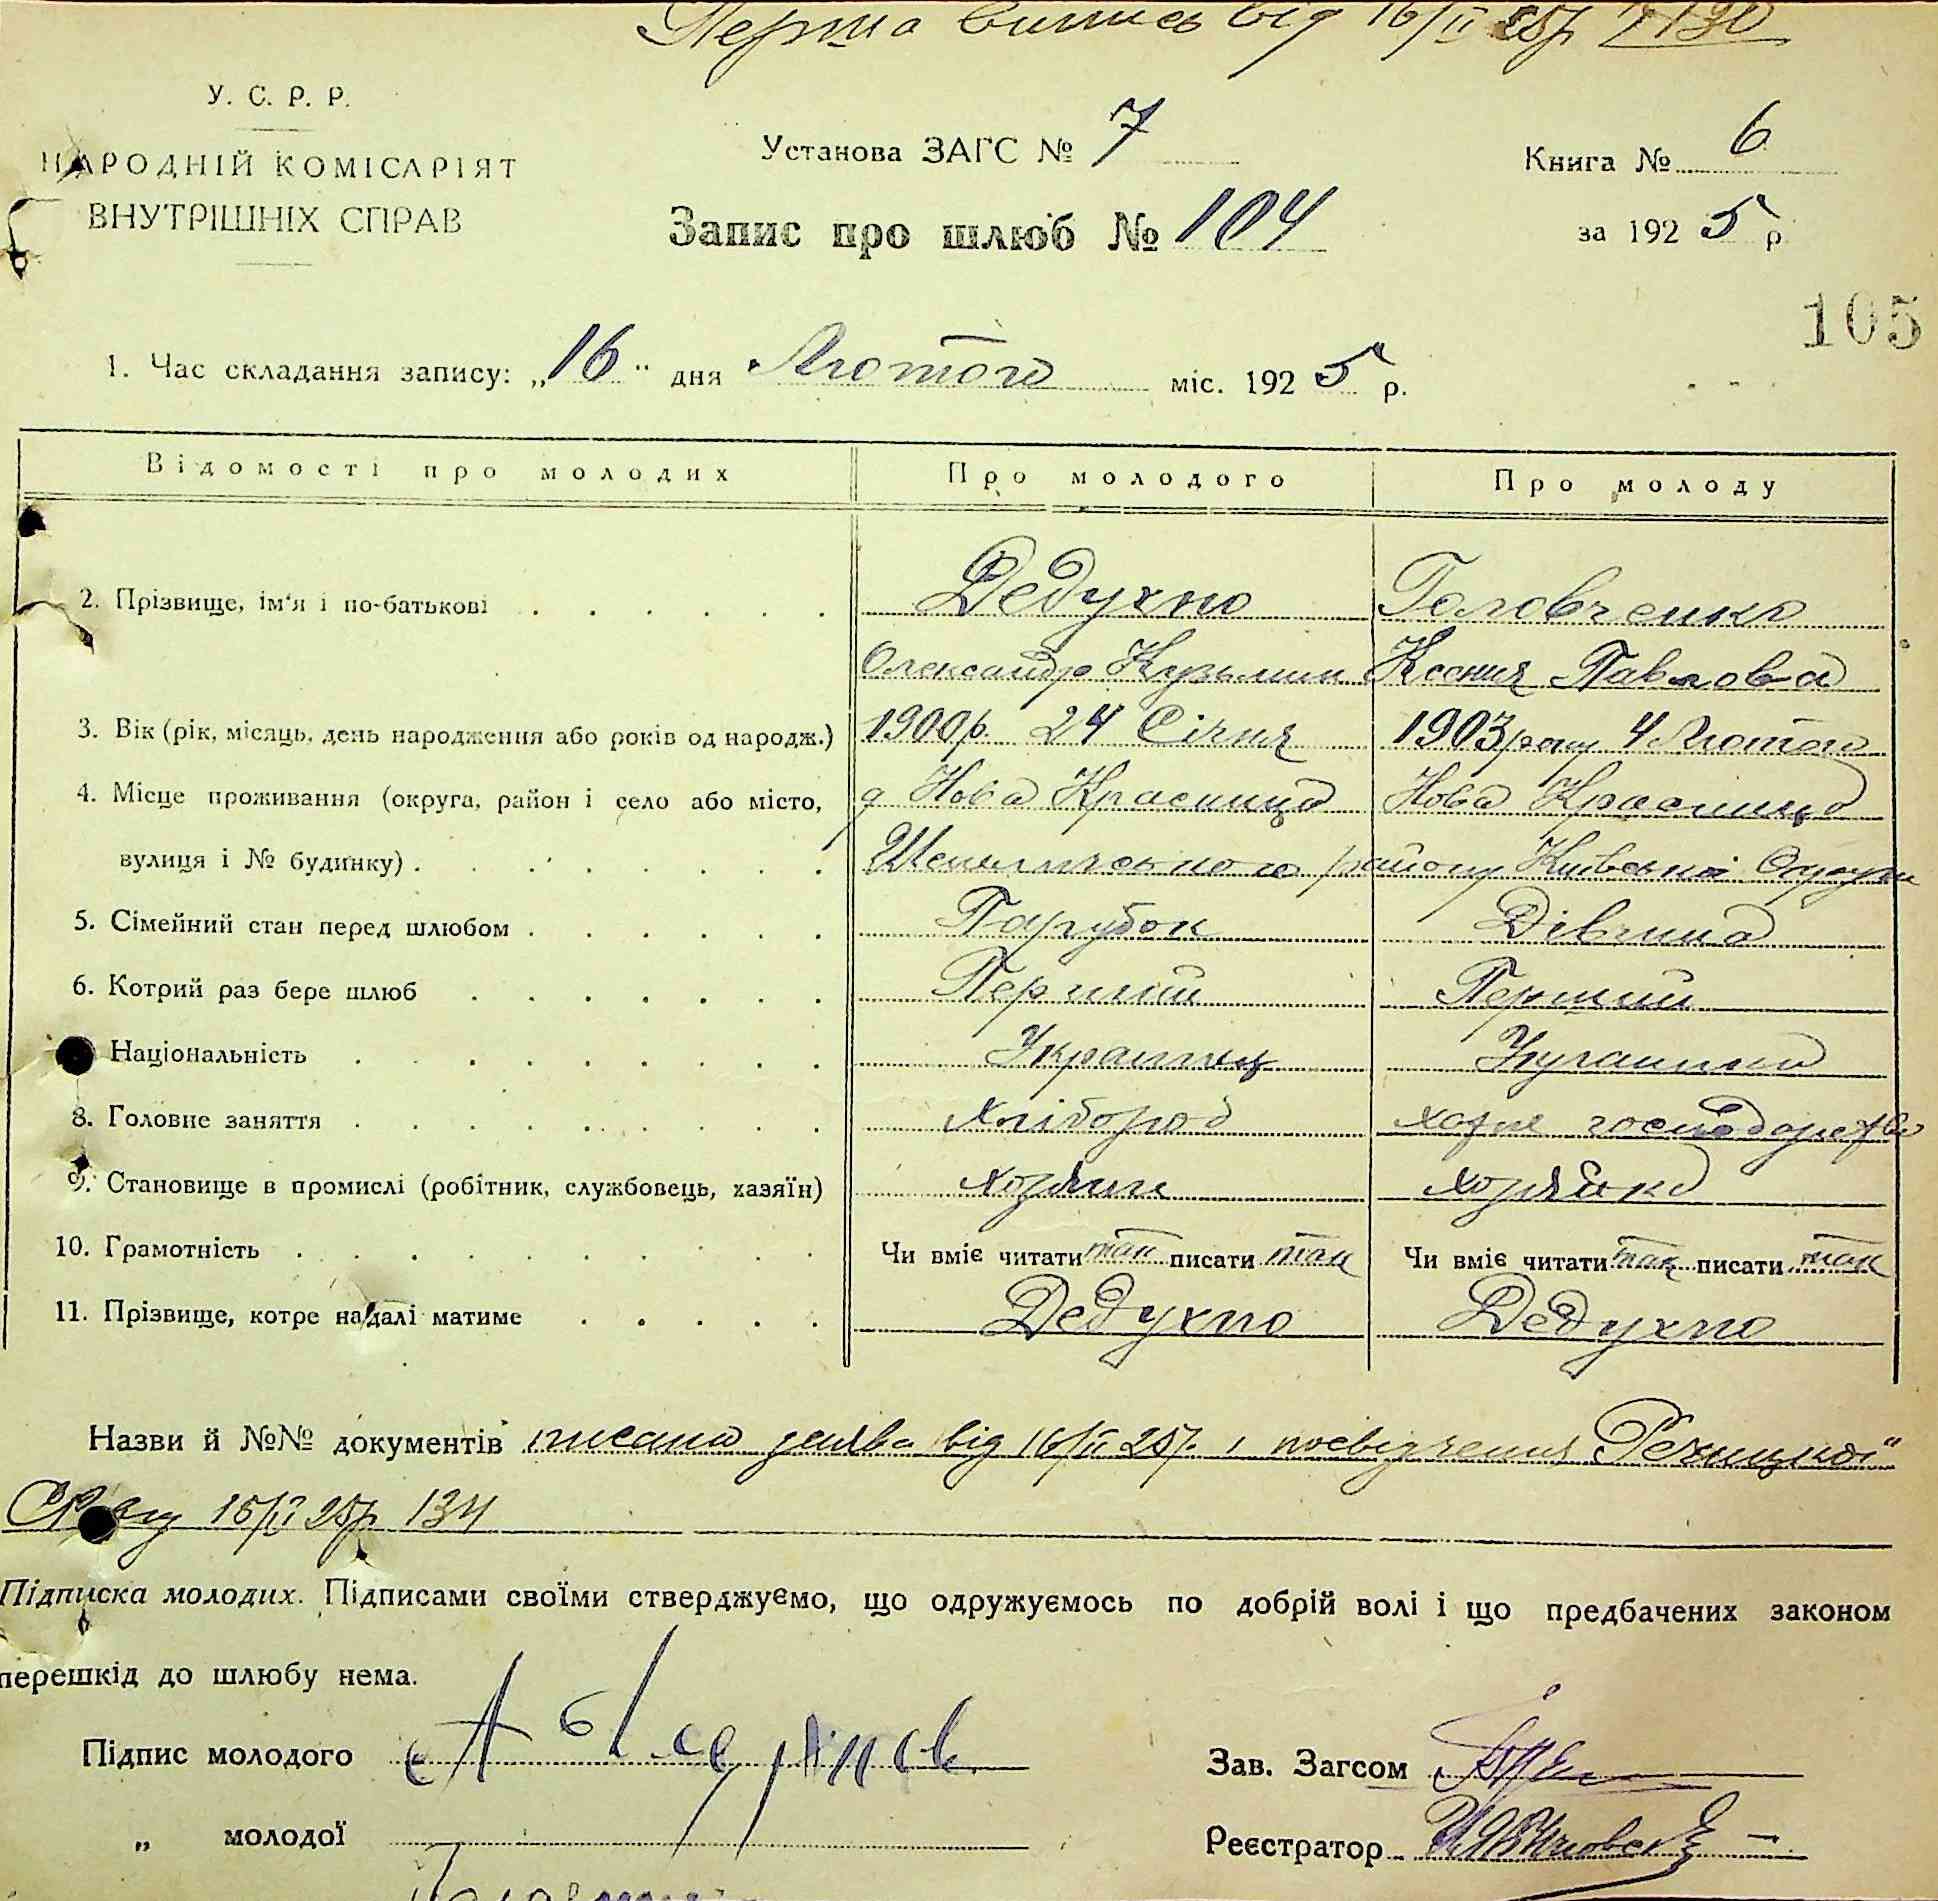 Перша випись від 16/II 25р. № 130
У. С. Р. Р.
НАРОДНІЙ КОМІСАРІЯТ
ВНУТРІШНІХ СПРАВ
Установа ЗАГС № 7
Книга № 6
Запис про шлюб № 104
за 1925 р
105
1. Час складання запису: „16" дня Лютого міс. 1925 р.
Відомості про молодих Про молодого Про молоду
2. Прізвище, ім'я і по-батькові Дедухно Головченко
Олександр Кузьмин Ксения Павлова
3. Вік (рік, місяць, день народження або років од народж.) 1900р. 24 Січня 1903 року 4 Лютого
4. Місце проживання (округа, район і село або місто, д Нова Красница Нова Красница
вулиця і № будинку) Шепелицького району Київської Округи
5. Сімейний стан перед шлюбом Парубок Дівчина
6. Котрий раз бере шлюб Перший Перший
Національність Українец Украинка
8. Головне заняття хлібороб хозяе господарство
9. Становище в промислі (робітник, службовець, хазяїн) хозяин хозяйка
10. Грамотність Чи вміє читати так писати так Чи вміє читати так писати так
11. Прізвище, котре надалі матиме Дедухно Дедухно
Назви й №№ документів писана заява від 16/II 25р. і посвідчення Речицкої
15/II 25р 134
Підписка молодих. Підписами своїми стверджуємо, що одружуємось по добрій волі і що предбачених законом
перешкід до шлюбу нема.
Підпис молодого
Зав. Загсом
„ молодої
Реєстратор